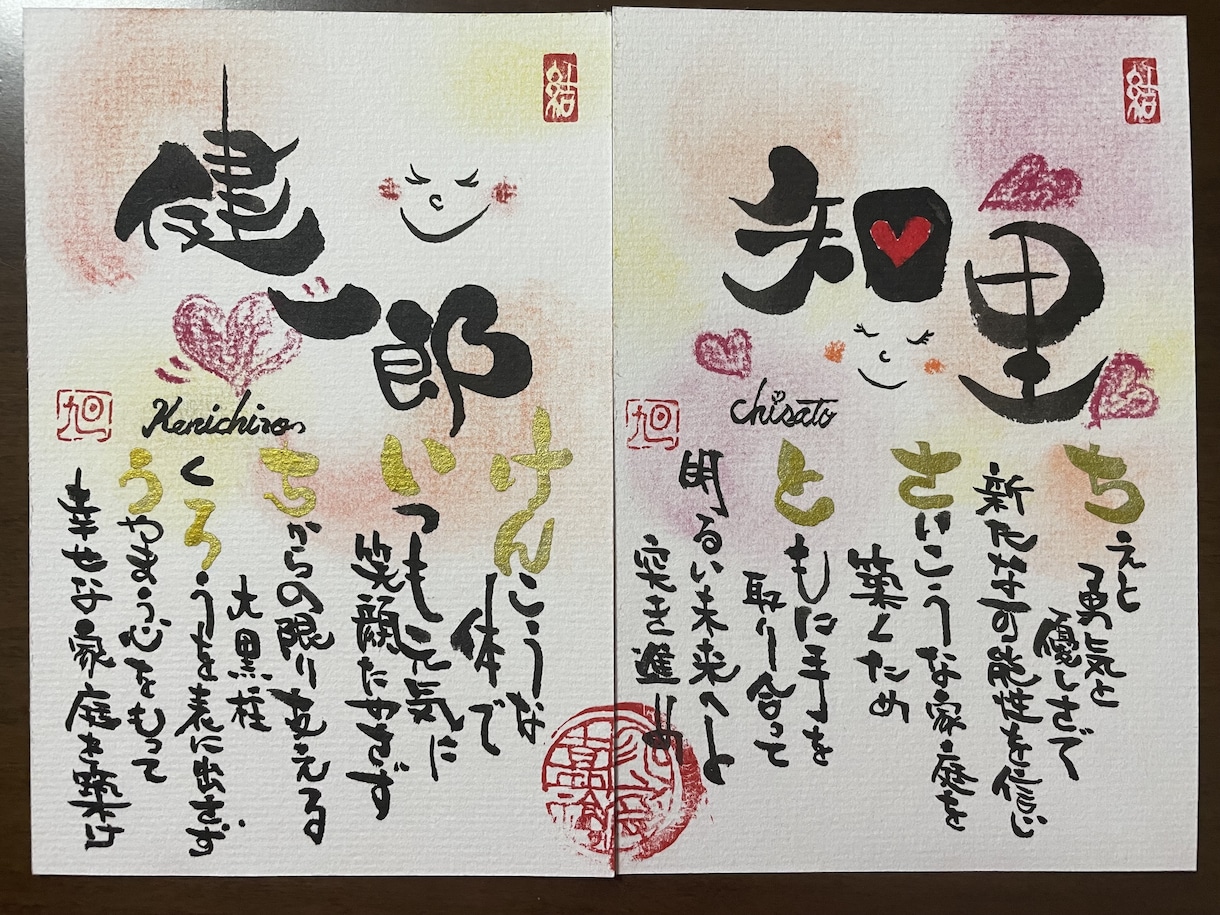 健
一郎
Kenichiro
けんこうな
体で
いつも元気に
笑顔たやさず
ちからの限り支える
大黒柱
くろうを表に出さず
うやまう心をもって
幸せな家庭を築け
旭
知里
chisato
ちえと
勇気と
優しさで
新たな可能性を信じ
さいこうな家庭を
築くため
ともに手を
取り合って
明るい未来へと
突き進め
旭